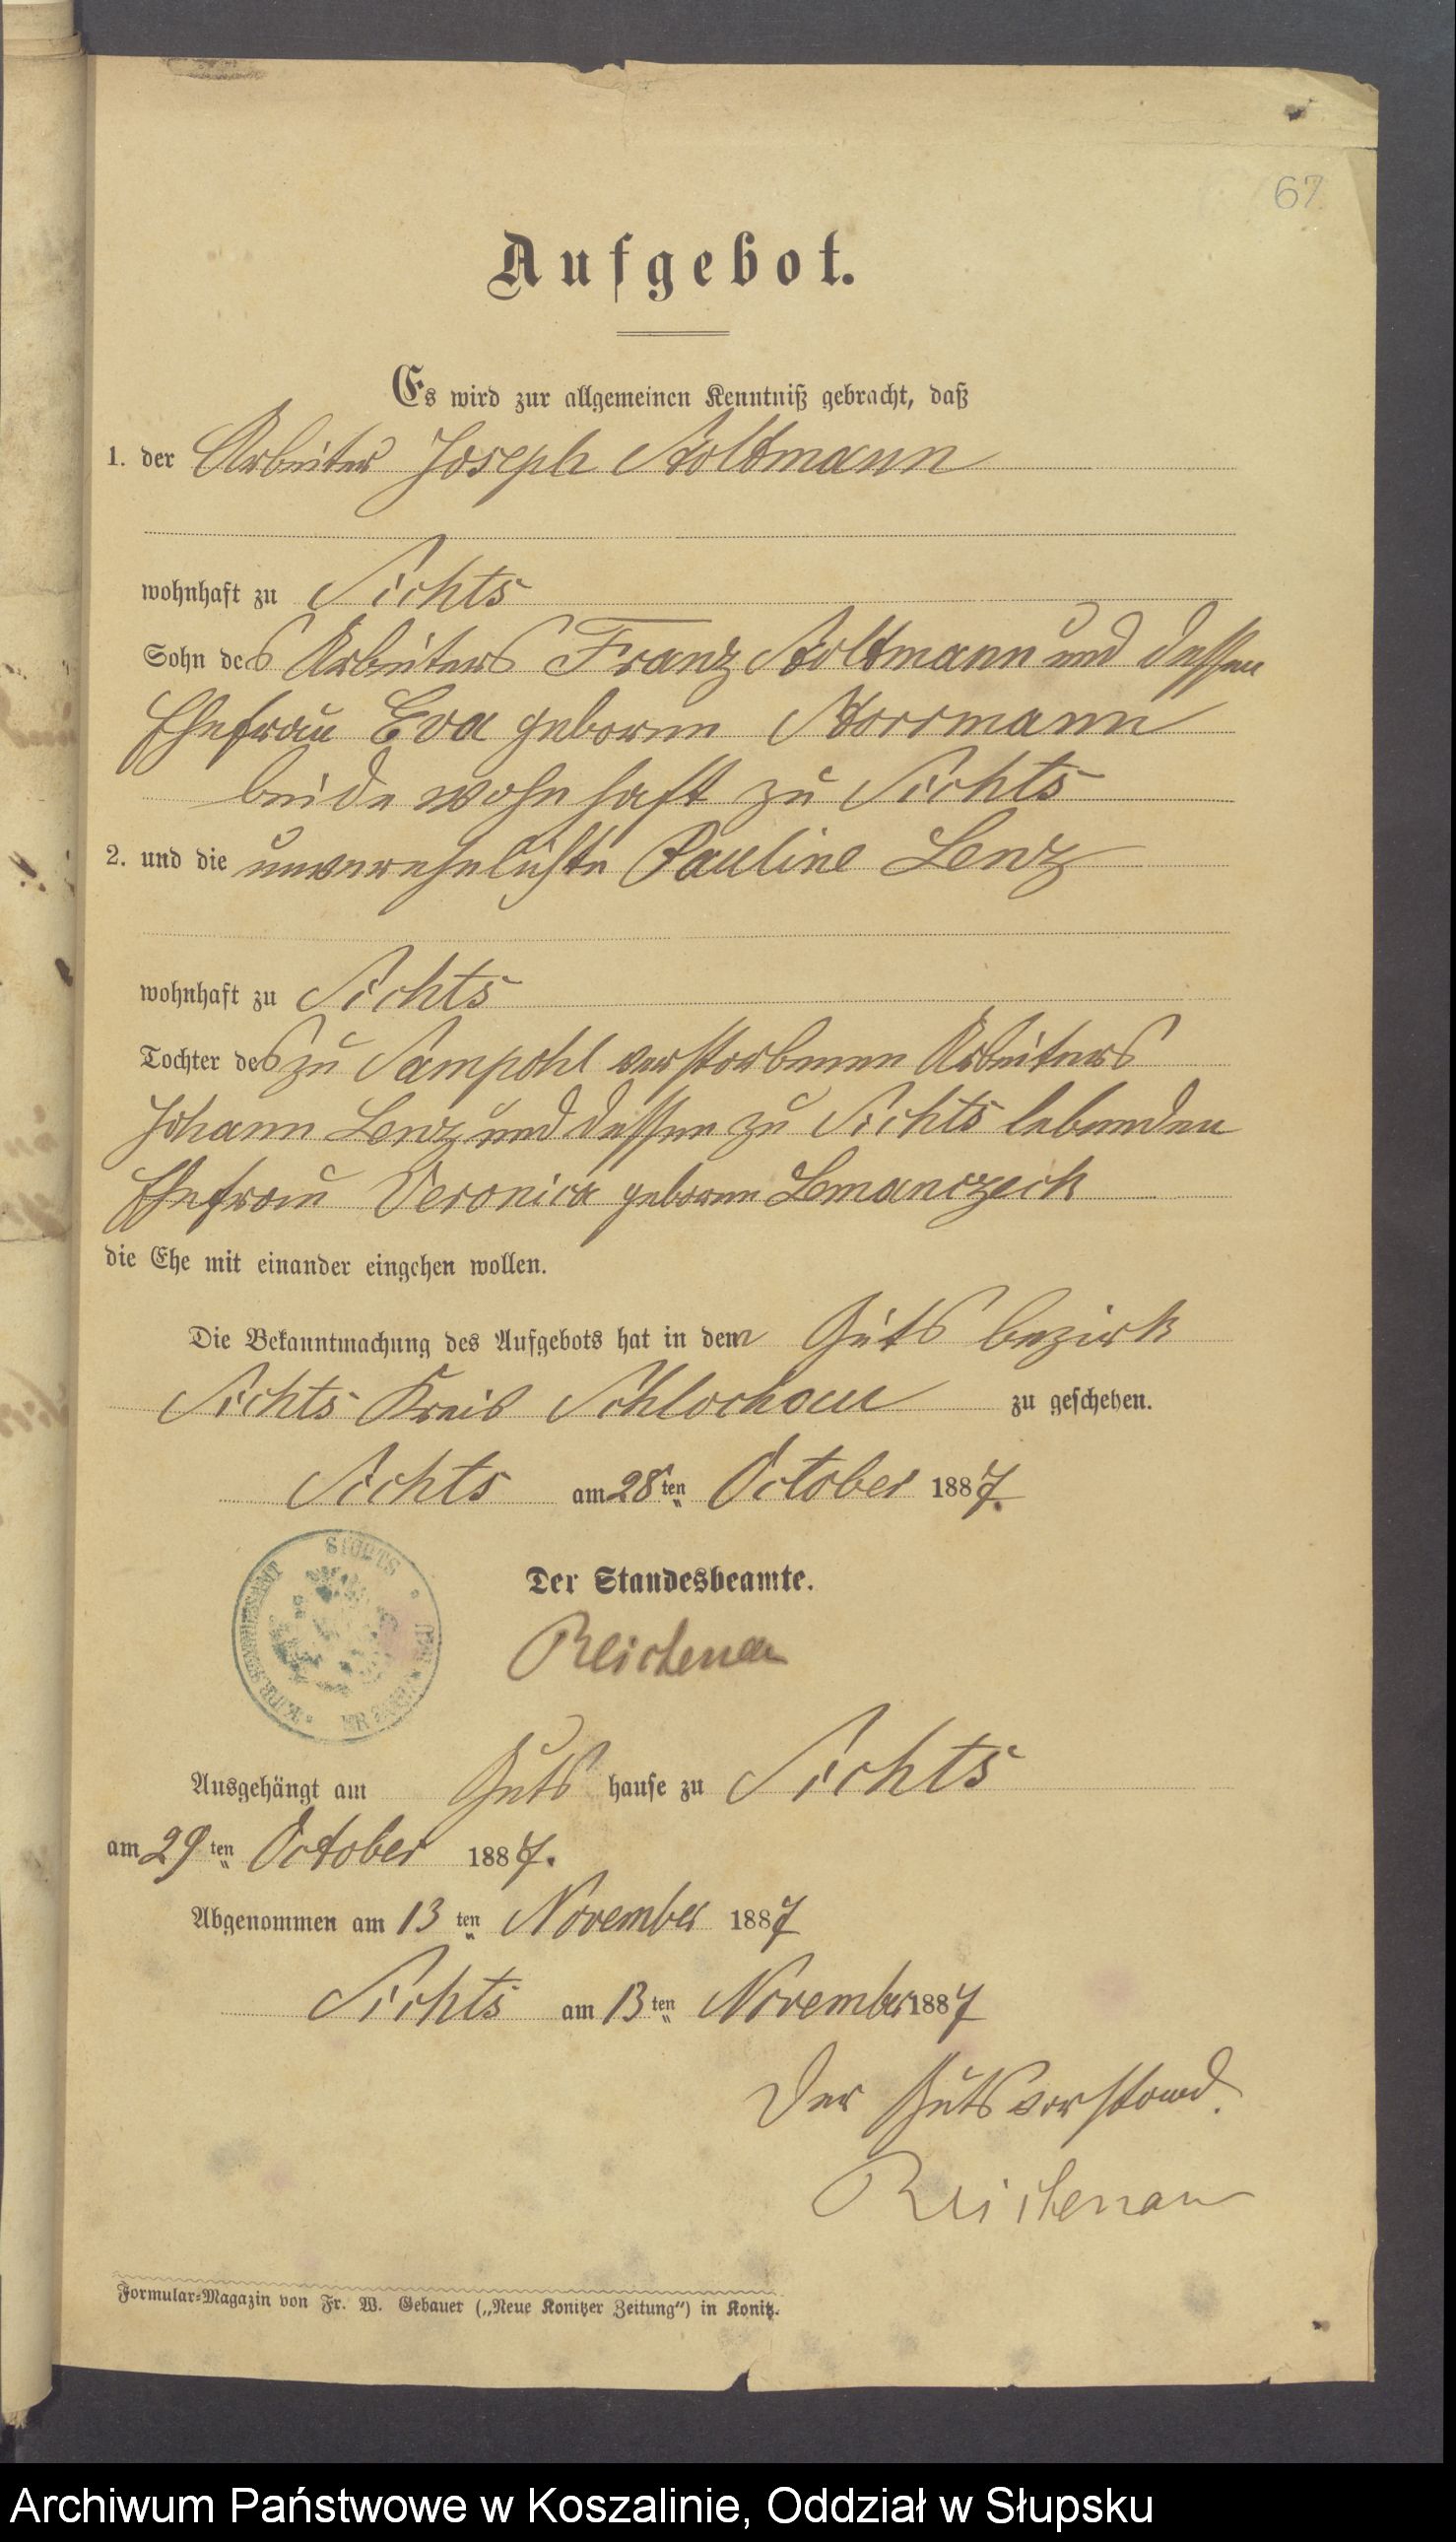 67
Aufgebot.
Es wird zur allgemeinen Kenntniß gebracht, daß
1. der Arbeiter Joseph Stoltmann
wohnhaft zu Sichts
Sohn des Arbeiters Franz Stoltmann und dessen
Ehefrau Eva geborene
beide wohnhaft zu Sichts
2. und die unverehelichte Pauline Lenz
wohnhaft zu Sichts
Tochter des zu Sampohl verstorbenen Arbeiters
Johann Lenz und dessen zu Sichts lebenden
Ehefrau Veronica geborene Lemanczeck
die Ehe mit einander eingehen wollen.
Die Bekanntmachung des Aufgebots hat in dem Guts bezirk
Sichts Kreis Schlochau zu geschehen.
Sichts am 28ten October 1887.
Der Standesbeamte.
Reichenau
Ausgehängt am Guts hause zu Sichts
am 29ten October 1887.
Abgenommen am 13ten November 1887
Sichts am 13ten November 1887
Der Gutsvorstand.
Reichenau
Formular-Magazin von Fr. W. Gebauer („Neue Konitzer Zeitung“) in Konitz.
Archiwum Państwowe w Koszalinie, Oddział w Słupsku